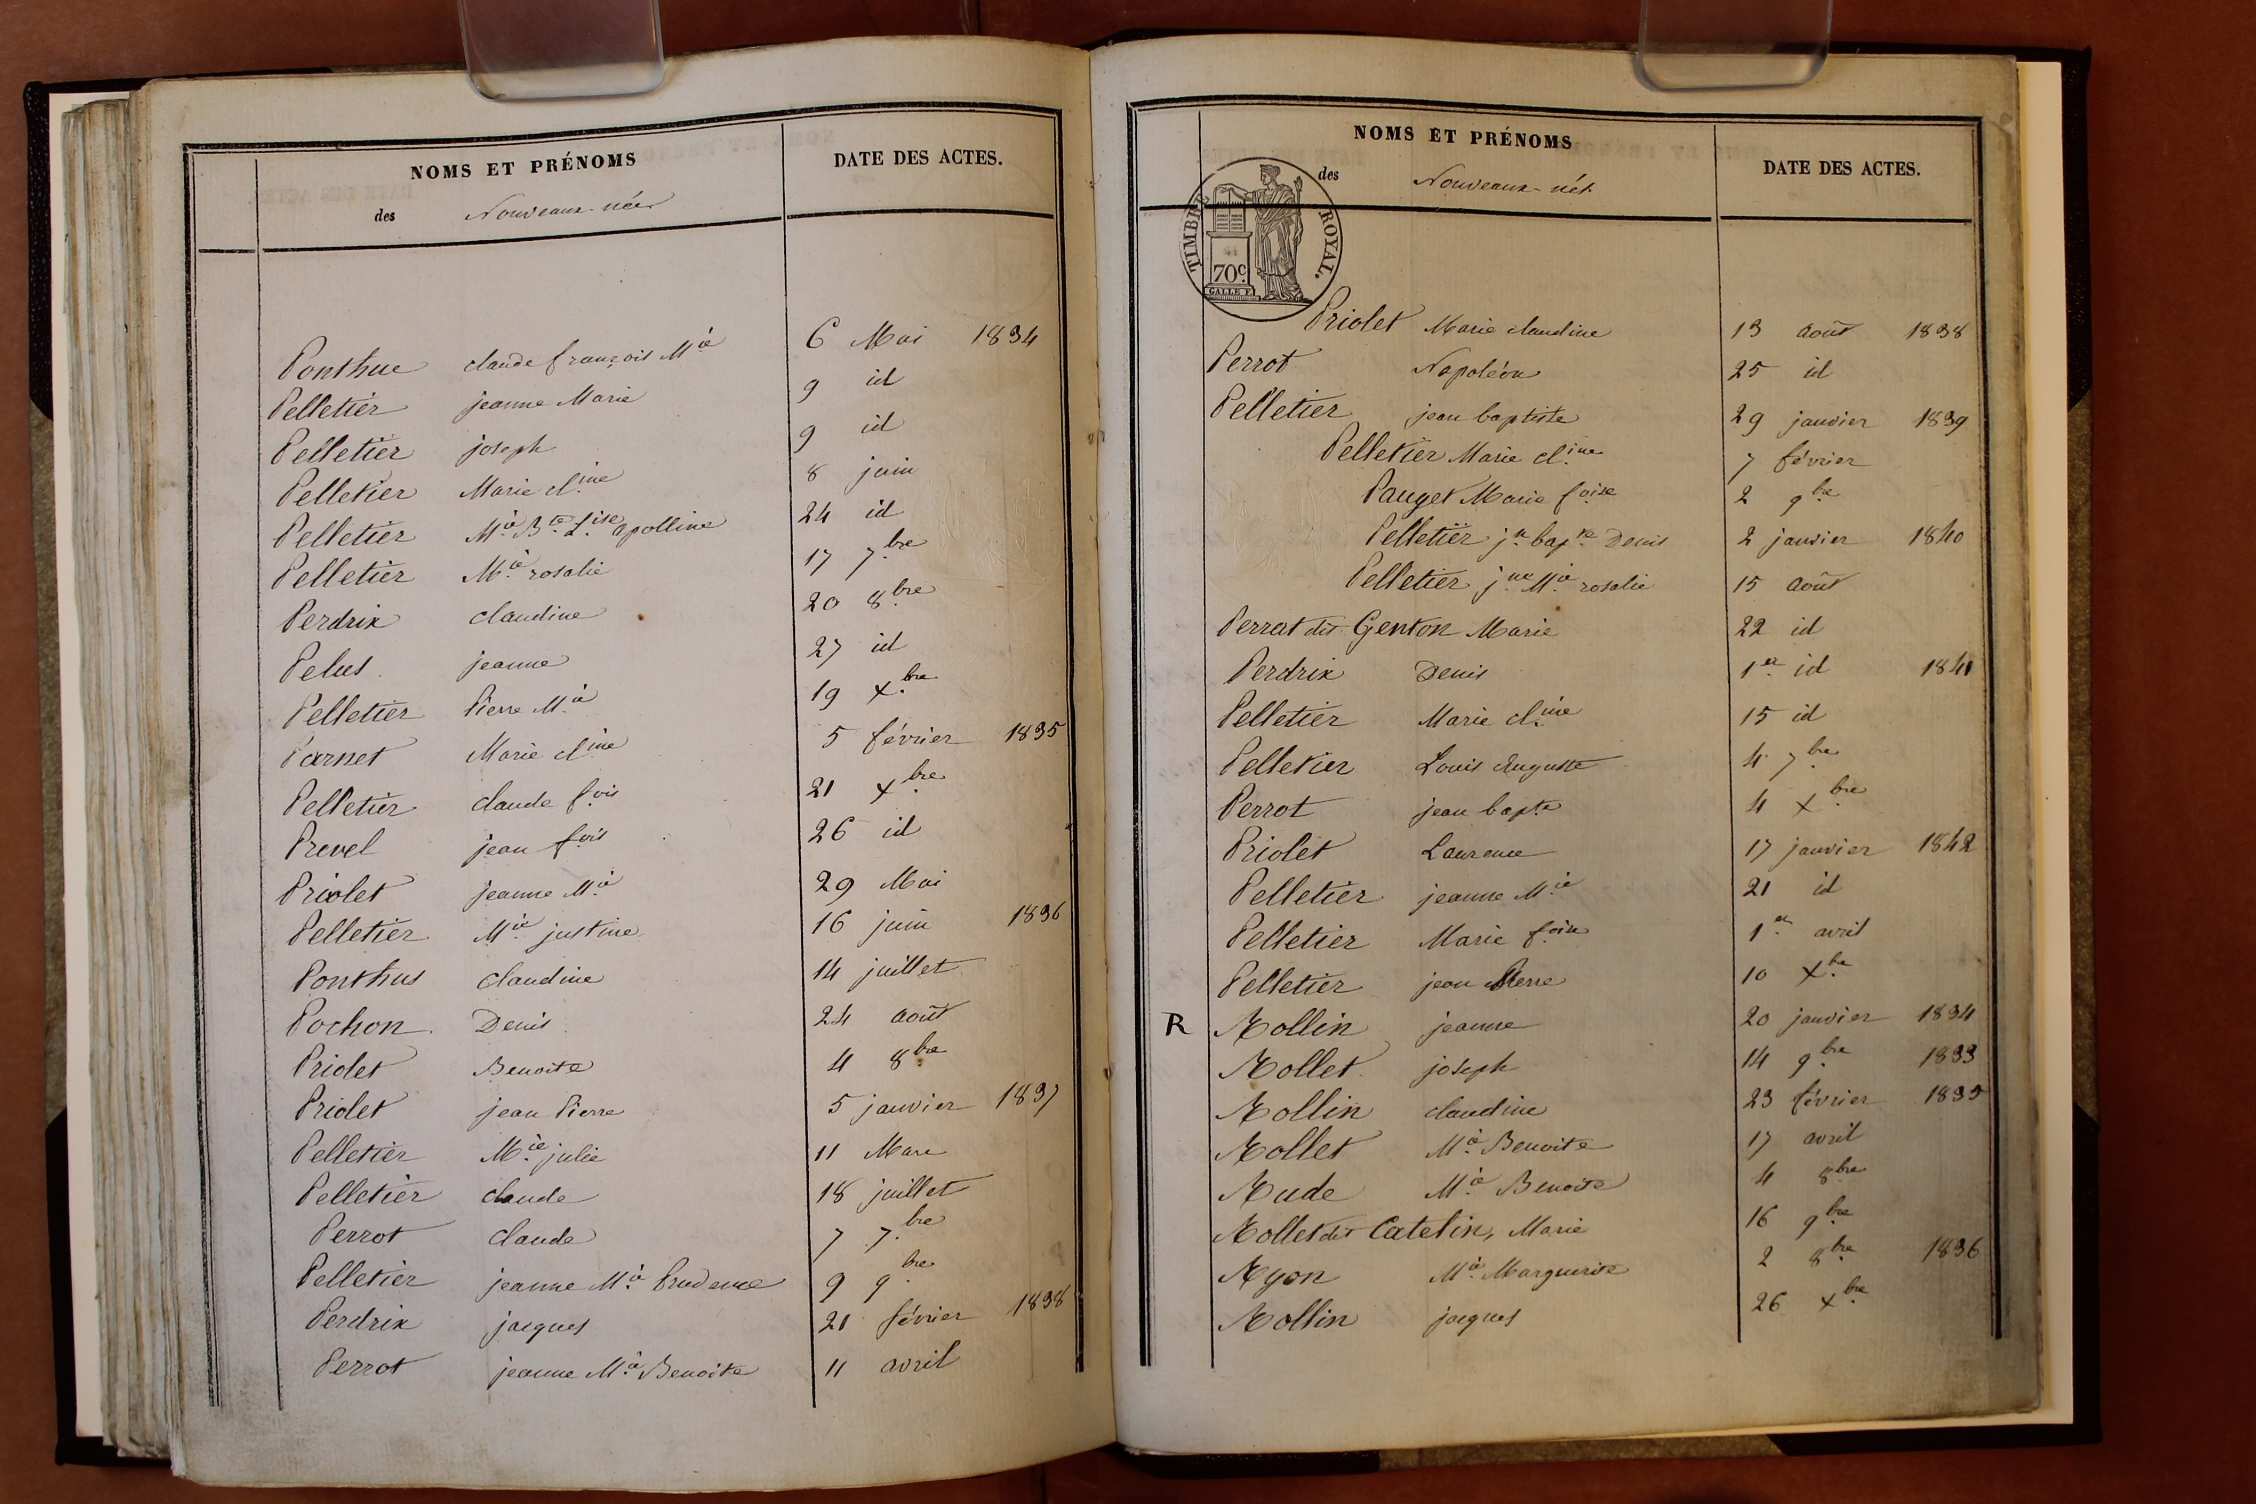 NOMS ET PRÉNOMS
des Nouveaux-nés
DATE DES ACTES.
Ponthue claude françois Mie 6 Mai 1834
Pelletier jeanne Marie 9 id
Pelletier joseph 9 id
Pelletier Marie cl.ine 8 juin
Pelletier M.ie B.te L.ise apolline 24 id
Pelletier M.ie rosalie 17 7.bre
Perdrix claudine 20 8.bre
Pelus jeanne 27 id
Pelletier Pierre M.ie 19 x.bre
Parnet Marie cl.ine 5 février 1835
Pelletier claude f.ois 21 x.bre
Prevel jean f.ois 26 id
Priolet jeanne M.ie 29 Mai
Pelletier M.ie justine 16 juin 1836
Ponthus claudine 14 juillet
Pochon Denis 24 août
Priolet Benoite 4 8.bre
Priolet jean Pierre 5 janvier 1837
Pelletier M.ie julie 11 Mars
Pelletier claude 18 juillet
Perrot claude 7 7.bre
Pelletier jeanne M.ie Prudence 9 9.bre
Perdrix jacques 21 février 1838
Perrot jeanne M.ie Benoite 11 avril
NOMS ET PRÉNOMS
des Nouveaux-nés
DATE DES ACTES.
TIMBRE ROYAL.
70c
Priolet Marie claudine 13 août 1838
Perrot Napoléon 25 id
Pelletier jean baptiste 29 janvier 1839
Pelletier Marie cl.ine 7 février
Pauget Marie f.oise 2 9.bre
Pelletier j.n bap.te Denis 2 janvier 1840
Pelletier j.ne M.ie rosalie 15 août
Perrat dit Genton Marie 22 id
Perdrix Denis 1er id 1841
Pelletier Marie cl.ine 15 id
Pelletier Louis Auguste 4 7.bre
Perrot jean bap.te 4 x.bre
Priolet Laurence 17 janvier 1842
Pelletier jeanne M.ie 21 id
Pelletier Marie f.oise 1er avril
Pelletier jean Pierre 10 x.bre
R Rollin jeanne 20 janvier 1834
Rollet joseph 14 9.bre 1833
Rollin claudine 23 février 1835
Rollet M.ie Benoite 17 avril
Rude M.ie Benoite 4 8.bre
Rollet dit Catelin, Marie 16 9.bre
Ryon M.ie Marguerite 2 8.bre 1836
Rollin jacques 26 x.bre